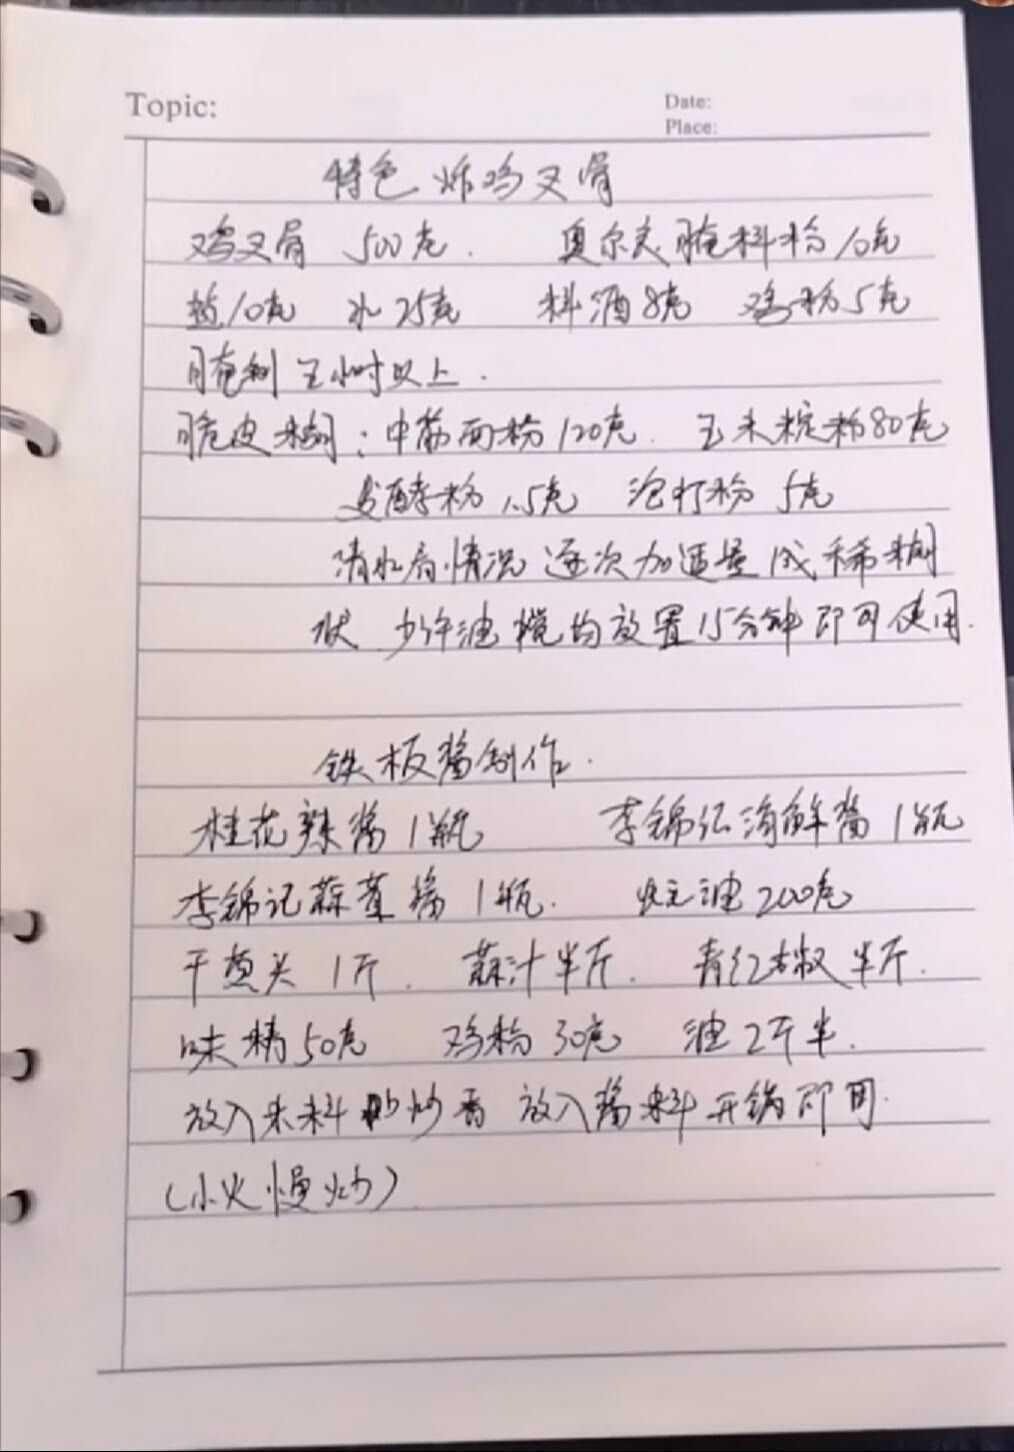 Topic:
Date:
Place:
特色炸鸡叉骨
鸡叉骨 500克. 奥尔良腌料粉10克
盐10克 水25克 料酒8克 鸡粉5克
腌制 小时以上.
脆皮糊:中筋面粉120克. 玉米粉80克
发酵粉1.5克 泡打粉 5克
清水看情况 逐次加适量 成稀糊
状 少许油搅均放置15分钟即可使用.
铁板酱制作.
桂花辣酱1瓶 李锦记海鲜酱1瓶
李锦记蒜蓉酱1瓶. 油200克
干葱头1斤. 蒜汁半斤. 青红椒半斤.
味精50克 鸡粉30克 油2斤半.
放入末料 炒香 放入酱料开锅即可.
(小火慢炒)